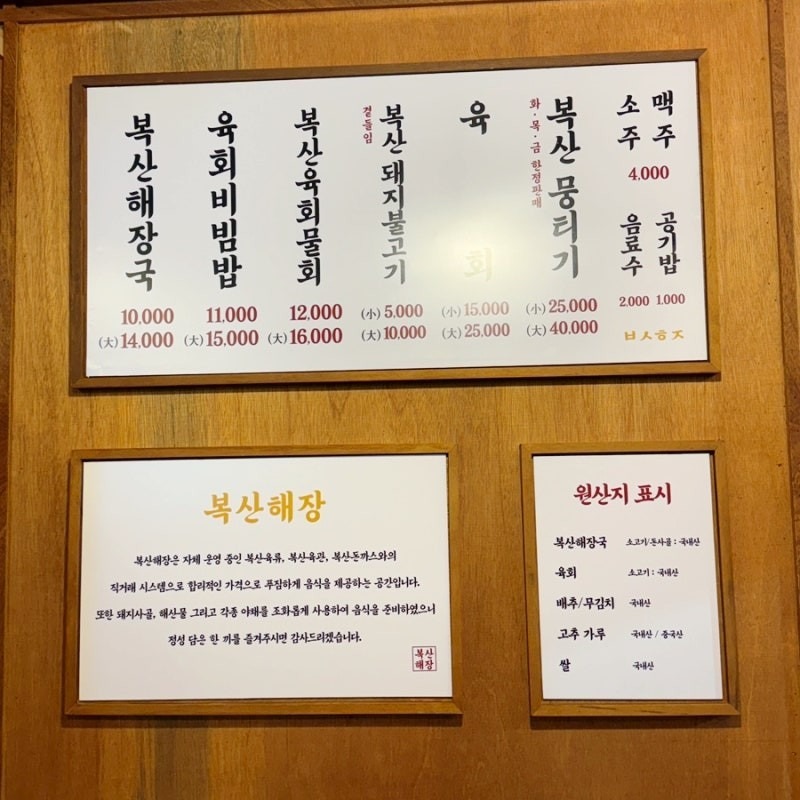 복산해장국
10.000
(大) 14.000
육회비빔밥
11.000
(大) 15.000
복산육회물회
12.000
(大) 16.000
곁들임
복산돼지불고기
(小) 5.000
(大) 10.000
육회
(小) 15.000
(大) 25.000
화·목·금 한정판매
복산뭉티기
(小) 25.000
(大) 40.000
맥주
소주
4.000
음료수
2.000
공기밥
1.000
ㅂㅅㅎㅈ
복산해장
복산해장은 자체 운영 중인 복산육류, 복산육관, 복산돈까스와의
직거래 시스템으로 합리적인 가격으로 푸짐하게 음식을 제공하는 공간입니다.
또한 돼지사골, 해산물 그리고 각종 야채를 조화롭게 사용하여 음식을 준비하였으니
정성 담은 한 끼를 즐겨주시면 감사드리겠습니다.
복산
해장
원산지 표시
복산해장국 소고기/돈사골 : 국내산
육회 소고기 : 국내산
배추/무김치 국내산
고추 가루 국내산 / 중국산
쌀 국내산